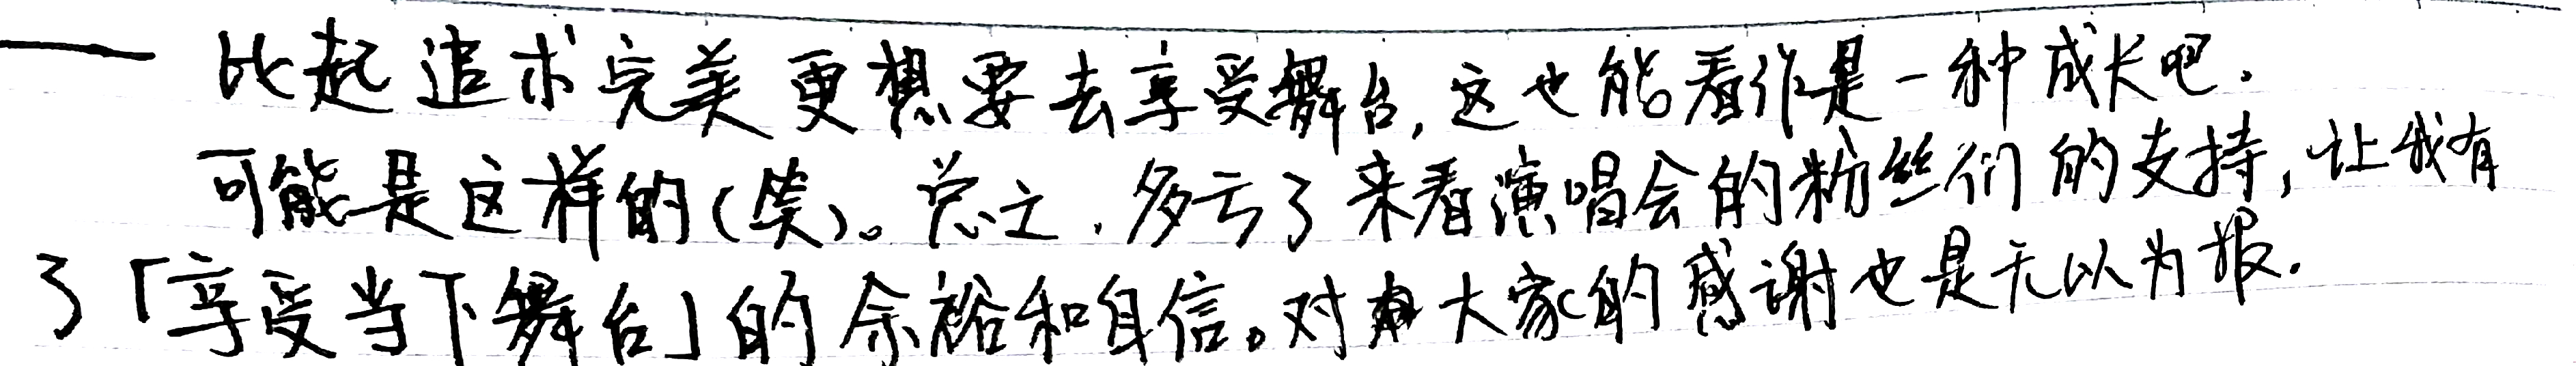 —— 比起追求完美更想要去享受舞台,这也能看作是一种成长吧.
可能是这样的(笑)。总之,多亏了来看演唱会的粉丝们的支持,让我有
了「享受当下舞台」的余裕和自信。对大家的感谢也是无以为报.